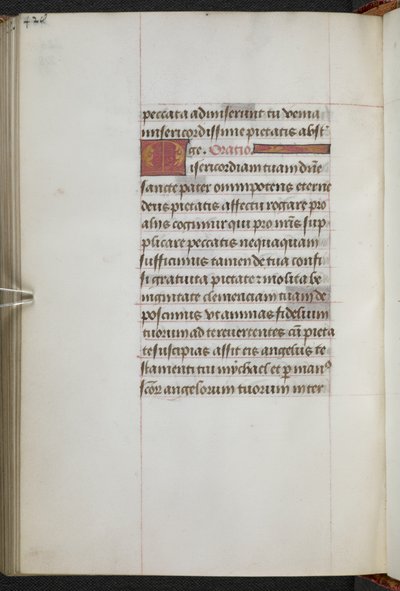 428
peccata admiserunt tu venia
misericordissime pietatis abst
ge. Oratio.
Misericordiam tuam dñe
sancte pater omnipotens eterne
deus pietatis affectu rogare pro
aliis cogimur qui pro nr̃is sup
plicare peccatis nequaquam
sufficimus tamen de tua confi
si gratuita pietate ⁊ molita be
nignitate clemenciam tuam de
poscimus vt animas fidelium
tuorum ad te reuertentes cũ pieta
te suscipias assit eis angelus te
stamenti tui mychael et ꝑ manꝰ
scõꝝ angelorum tuorum inter